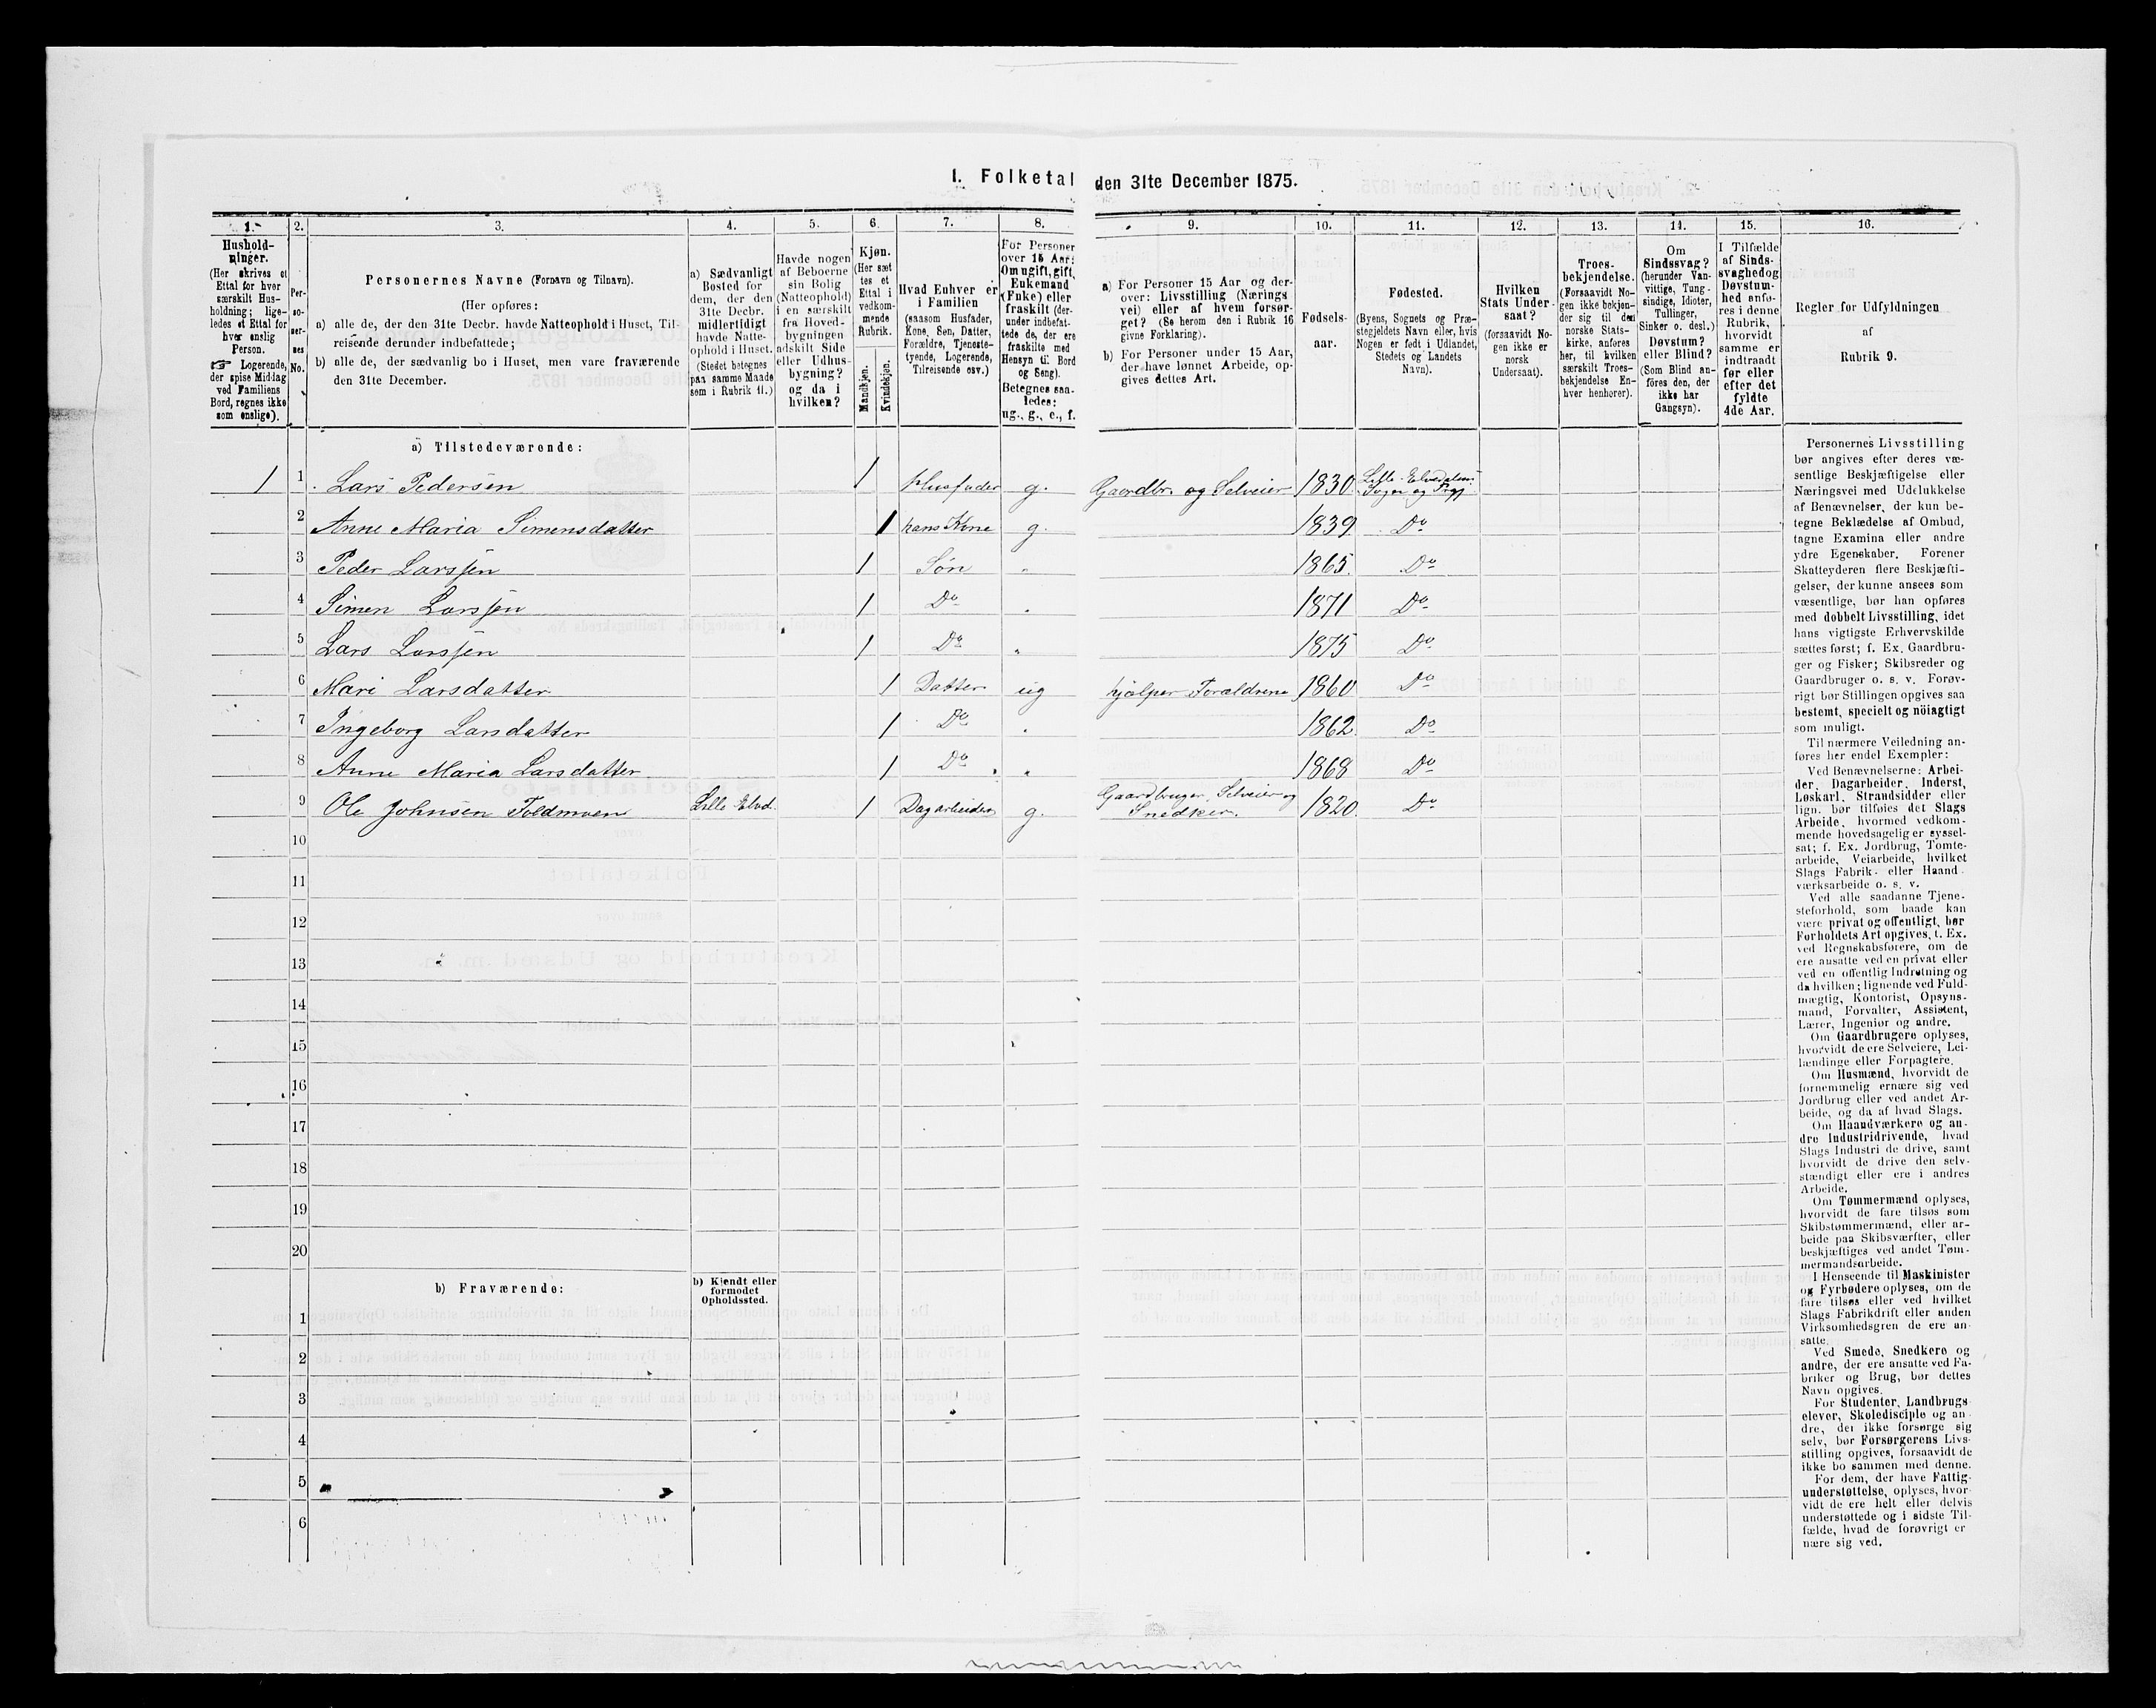 I. Folketal den 31te December 1875.
1. 2. 3. 4. 5. 6. 7. 8. 9. 10. 11. 12. 13. 14. 15. 16.
Hushold-
ninger.
(Her skrives et
Ettal for hver
særskilt Hus-
holdning; lige-
ledes et Ettal for
hver enslig
Person.
☞ Logerende,
der spise Middag
ved Familiens
Bord, regnes ikke
som enslige).
Per-
so-
ner-
nes
No.
Personernes Navne (Fornavn og Tilnavn).
(Her opføres:
a) alle de, der den 31te Decbr. havde Natteophold i Huset, Til-
reisende derunder indbefattede;
b) alle de, der sædvanlig bo i Huset, men vare fraværende
den 31te December.
a) Sædvanligt
Bosted for
dem, der den
31te Decbr.
midlertidigt
havde Natte-
ophold i Huset.
(Stedet betegnes
paa samme Maade
som i Rubrik 11.)
Havde nogen
af Beboerne
sin Bolig
(Natteophold)
i en særskilt
fra Hoved-
bygningen
adskilt Side
eller Udhus-
bygning?
og da i
hvilken?
Kjøn.
(Her sæt
tes et
Ettal i
vedkom-
mende
Rubrik.
Mandkjøn.
Kvindekjøn.
Hvad Enhver er
i Familien
(saasom Husfader,
Kone, Søn, Datter,
Forældre, Tjeneste-
tyende, Logerende,
Tilreisende osv.)
For Personer
over 15 Aar:
Om ugift, gift,
Enkemand
(Enke) eller
fraskilt (der-
under indbefat-
tede de, der ere
fraskilte med
Hensyn til Bord
og Seng).
Betegnes saa-
ledes:
ug., g., e., f.
a) For Personer 15 Aar og der-
over: Livsstilling (Nærings
vei) eller af hvem forsør-
get? (Se herom den i Rubrik 16
givne Forklaring).
b) For Personer under 15 Aar,
der have lønnet Arbeide, op-
gives dettes Art.
Fødsels-
aar.
Fødested.
(Byens, Sognets og Præ-
stegjeldets Navn eller, hvis
Nogen er født i Udlandet,
Stedets og Landets
Navn).
Hvilken
Stats Under-
saat?
(forsaavidt No-
gen ikke er
norsk
Undersaat).
Troes-
bekjendelse.
(Forsaavidt No-
gen ikke bekjen-
der sig til den
norske Stats-
kirke, anføres
her, til hvilken
særskilt Troes-
bekjendelse En-
hver henhører).
Om
Sindssvag?
(herunder Van-
vittige, Tung-
sindige, Idioter,
Tullinger,
Sinker o. desl.)
Døvstum?
eller Blind?
(Som Blind an-
føres den, der
ikke har
Gangsyn).
I Tilfælde
af Sinds-
svaghed og
Døvstum-
hed anfø-
res i denne
Rubrik,
hvorvidt
samme er
indtraadt
før eller
efter det
fyldte
4de Aar.
Regler for Udfyldningen
af
Rubrik 9.
a) Tilstedeværende:
1 1 Lars Pedersen 1 Husfader g. Gaardbr. og Selveier 1830. Lille Elvedalens Sogn og Prgj.
2 Anne Maria Simensdatter 1 hans Kone g. 1839. Do
3 Peder Larssen 1 Søn " 1865. Do
4 Simen Larssen 1 Do " 1871 Do
5 Lars Larssen 1 Do " 1875 Do
6 Mari Larsdatter 1 Datter ug hjælper Forældrene 1860 Do
7 Ingeborg Larsdatter 1 Do " 1862. Do
8 Anne Maria Larsdatter 1 Do " 1868 Do
9 Ole Johnsen Toldmoen Lille Elvd. 1 Dagarbeider g. Gaardbruger Selveier og Snedker. 1820. Do
10
11
12
13
14
15
16
17
18
19
20
b) Fraværende:
b) Kjendt eller
formodet
Opholdssted.
1
2
3
4
5
6
Personernes Livsstilling
bør angives efter deres væ-
sentlige Beskjæftigelse eller
Næringsvei med Udelukkelse
af Benævnelser, der kun be-
tegne Beklædelse af Ombud,
tagne Examina eller andre
ydre Egenskaber. Forener
Skatteyderen flere Beskjæfti-
gelser, der kunne ansees som
væsentlige, bør han opføres
med dobbelt Livsstilling, idet
hans vigtigste Erhvervskilde
sættes først; f. Ex. Gaardbru-
ger og Fisker; Skibsreder og
Gaardbruger o. s. v. Forøv-
rigt bør Stillingen opgives saa
bestemt, specielt og nöiagtigt
som muligt.
Til nærmere Veiledning an-
føres her endel Exempler:
Ved Benævnelserne: Arbei-
der, Dagarbeider, Inderst,
Løskarl, Strandsidder eller
lign. bør tilføies det Slags
Arbeide, hvormed vedkom-
mende hovedsagelig er syssel-
sat; f. Ex. Jordbrug, Tomte-
arbeide, Veiarbeide, hvilket
Slags Fabrik- eller Haand-
værksarbeide o. s. v.
Ved alle saadanne Tjene-
steforhold, som baade kan
være privat og offentligt, bør
Forholdets Art opgives, t. Ex.
ved Regnskabsførere, om de
ere ansatte ved en privat eller
ved en offentlig Indretning og
da hvilken; lignende ved Fuld-
mægtig, Kontorist, Opsyns-
mand, Forvalter, Assistent,
Lærer, Ingeniør og andre.
Om Gaardbrugere oplyses,
hvorvidt de ere Selveiere, Lei-
lændinge eller Forpagtere.
Om Husmænd, hvorvidt de
fornemmelig ernære sig ved
Jordbrug eller ved andet Ar-
beide, og da af hvad Slags.
Om Haandværkere og an-
dre Industridrivende, hvad
Slags Industri de drive, samt
hvorvidt de drive den selv-
stændigt eller ere i andres
Arbeide.
Om Tømmermænd oplyses,
hvorvidt de fare tilsøs som
Skibstømmermænd, eller ar-
beide paa Skibsværfter, eller
beskjæftiges ved andet Tøm-
mermandsarbeide.
I Henseende til Maskinister
og Fyrbødere oplyses, om de
fare tilsøs eller ved hvilket
Slags Fabrikdrift eller anden
Virksomhedsgren de ere an-
satte.
Ved Smede, Snedkere og
andre, der ere ansatte ved Fa-
briker og Brug, bør dettes
Navn opgives.
For Studenter, Landbrugs
elever, Skoledisciple og an-
dre, der ikke forsørge sig
selv, bør Forsørgerens Livs-
stilling opgives, forsaavidt de
ikke bo sammen med denne.
For dem, der have Fattig-
understøttelse, oplyses, hvor-
vidt de ere helt eller delvis
understøttede og i sidste Til-
fælde, hvad de forøvrigt er
nære sig ved.